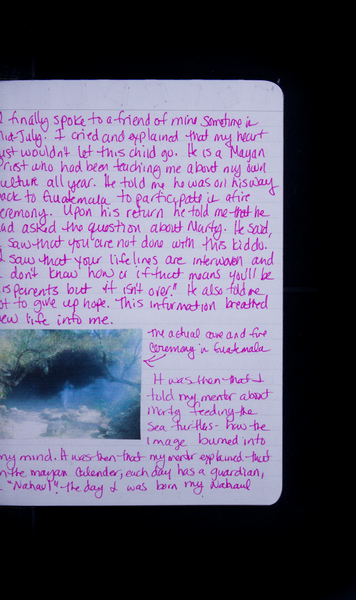 I finally spoke to a friend of mine sometime in
mid-July. I cried and explained that my heart
just wouldn't let this child go. He is a Mayan
Priest who had been teaching me about my own
culture all year. He told me he was on his way
back to Guatemala to participate in a fire
ceremony. Upon his return he told me that he
had asked the question about Marty. He said,
"I saw that you are not done with this kiddo.
I saw that your life lines are interwoven and
I don't know how or if that means you'll be
his parents but it isn't over." He also told me
not to give up hope. This information breathed
new life into me.
The actual cave and fire
ceremony in Guatemala
It was then that I
told my mentor about
Marty feeding the
sea turtles - how the
image burned into
my mind. It was then that my mentor explained that
in the mayan calender, each day has a guardian,
a "Nahaul". The day I was born my Nahaul